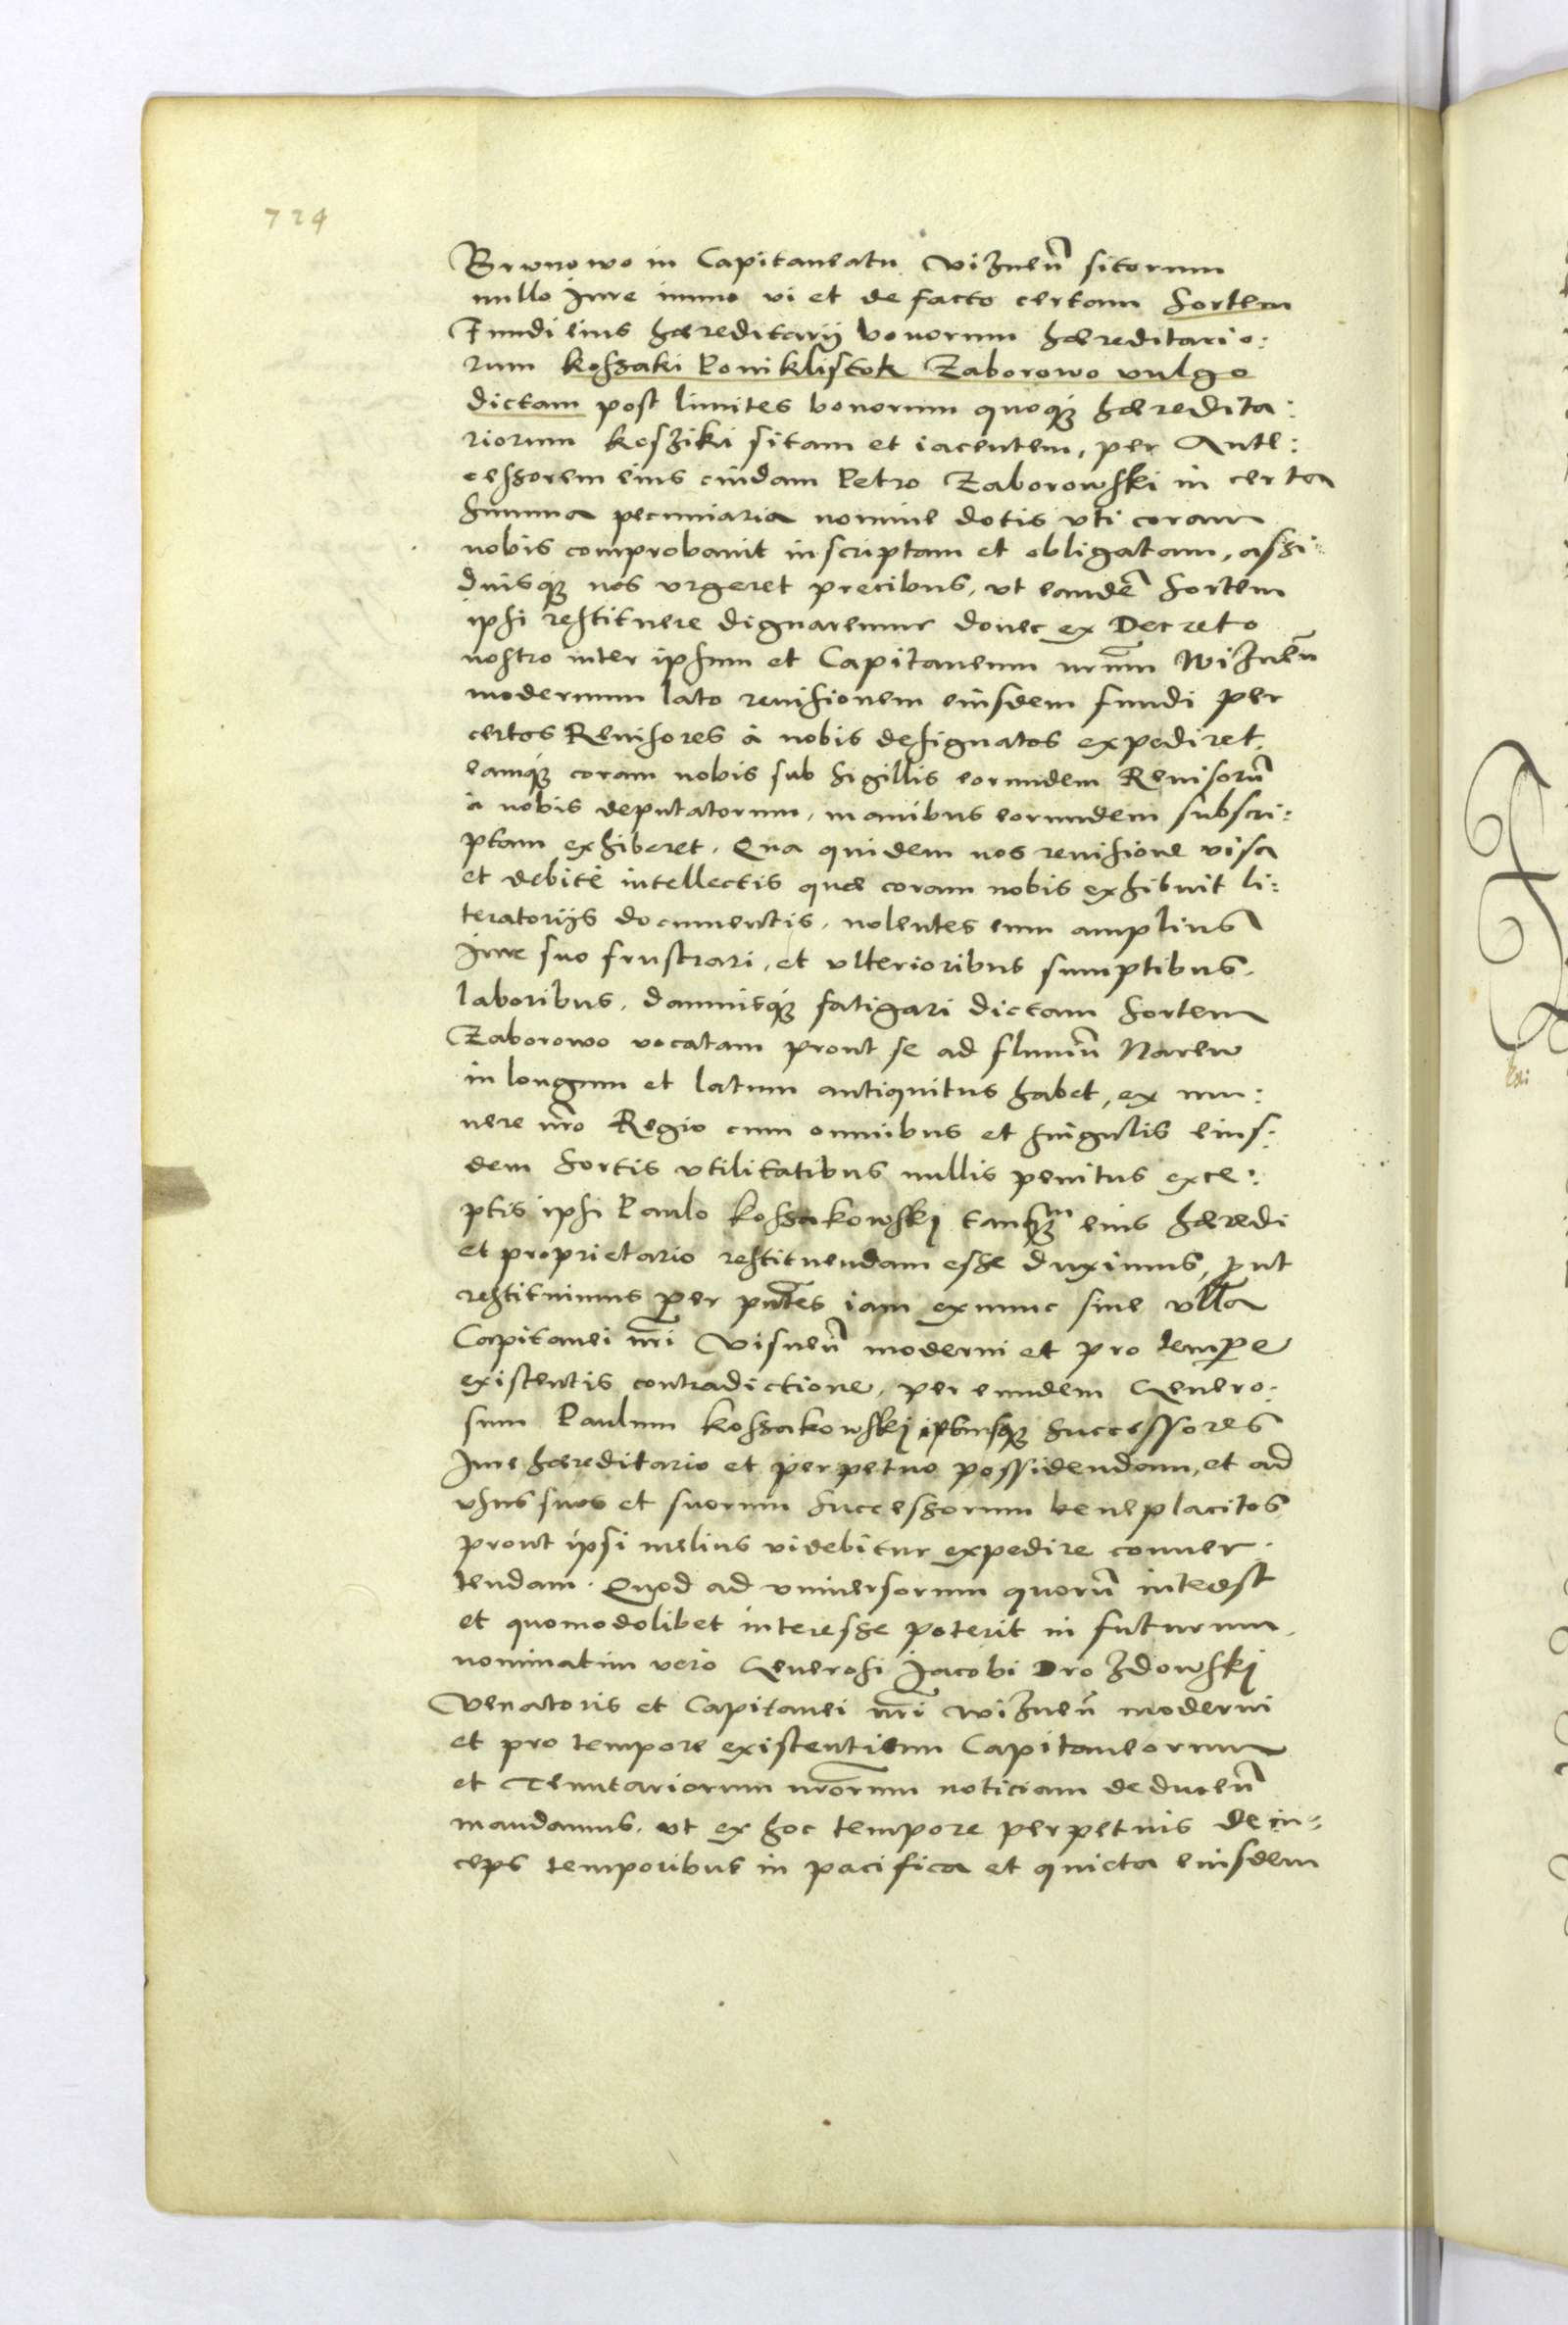 724
Bronowo in Capitaneatu Vizneñ sitorum
nullo iure immo vi et de facto certam Sortem
Fundi eius hæreditarij bonorum hæreditario:
rum Kossaki Poniklistok Zaborowo vulgo
dictam post limites bonorum quoqȝ hæredita:
riorum Kosziki sitam et iacentem, per Ante:
cessorem eius cuidam Petro Zaborowski in certa
summa pecuniaria nomine dotis uti coram
nobis comprobauit inscriptam et obligatam, assi:
duisqȝ nos vrgeret precibus, vt eandē Sortem
ipsi restituere dignaremur donec ex Decreto
nostro inter ipsum et Capitaneum nrūm Wizneñ
modernum lato reuisionem eiusdem fundi per
certos Reuisores à nobis designatos expediret,
eamqȝ coram nobis sub sigillis eorundem Reuisorū
à nobis deputatorum, manibus eorundem subscri:
ptam exhiberet. Qua quidem nos reuisione visa
et debitè intellectis quæ coram nobis exhibuit li:
teratorijs documentis, nolentes eum amplius
iure suo frustrari, et vlterioribus sumptibus,
laboribus, damnisqȝ fatigari dictam Sortem
Zaborowo vocatam prout se ad fluuiū Narew
in longum et latum antiquitus habet, ex mu:
nere nr̃o Regio cum omnibus et singulis eius:
dem Sortis vtilitatibus nullis penitus exce:
ptis ipsi Paulo Kossakowskj tanqȝm eius hæredi
et proprietario restituendam esse duximus, prout
restituimus per pñtes iam ex nunc sine vlla
Capitanei nr̃i Visneñ moderni et pro tempe
existentis contradictione, per eundem Genero:
sum Paulum Kossakowskj ipsiusqȝ successores
Iure hæreditario et perpetuo possidendam, et ad
vsus suos et suorum successorum beneplacitos
prout ipsi melius videbitur expedire conuer:
tendam. Quod ad vniuersorum quorū interest
et quomodolibet interesse poterit in futurum,
nominatim vero Generosi Jacobi Drozdowskj
Venatoris et Capitanei nr̃i Wizneñ moderni
et pro tempore existentium Capitaneorum
et Tenutariorum nr̃orum noticiam deduceñ
mandamus, ut ex hoc tempore perpetuis dein:
ceps temporibus in pacifica et quieta eiusdem